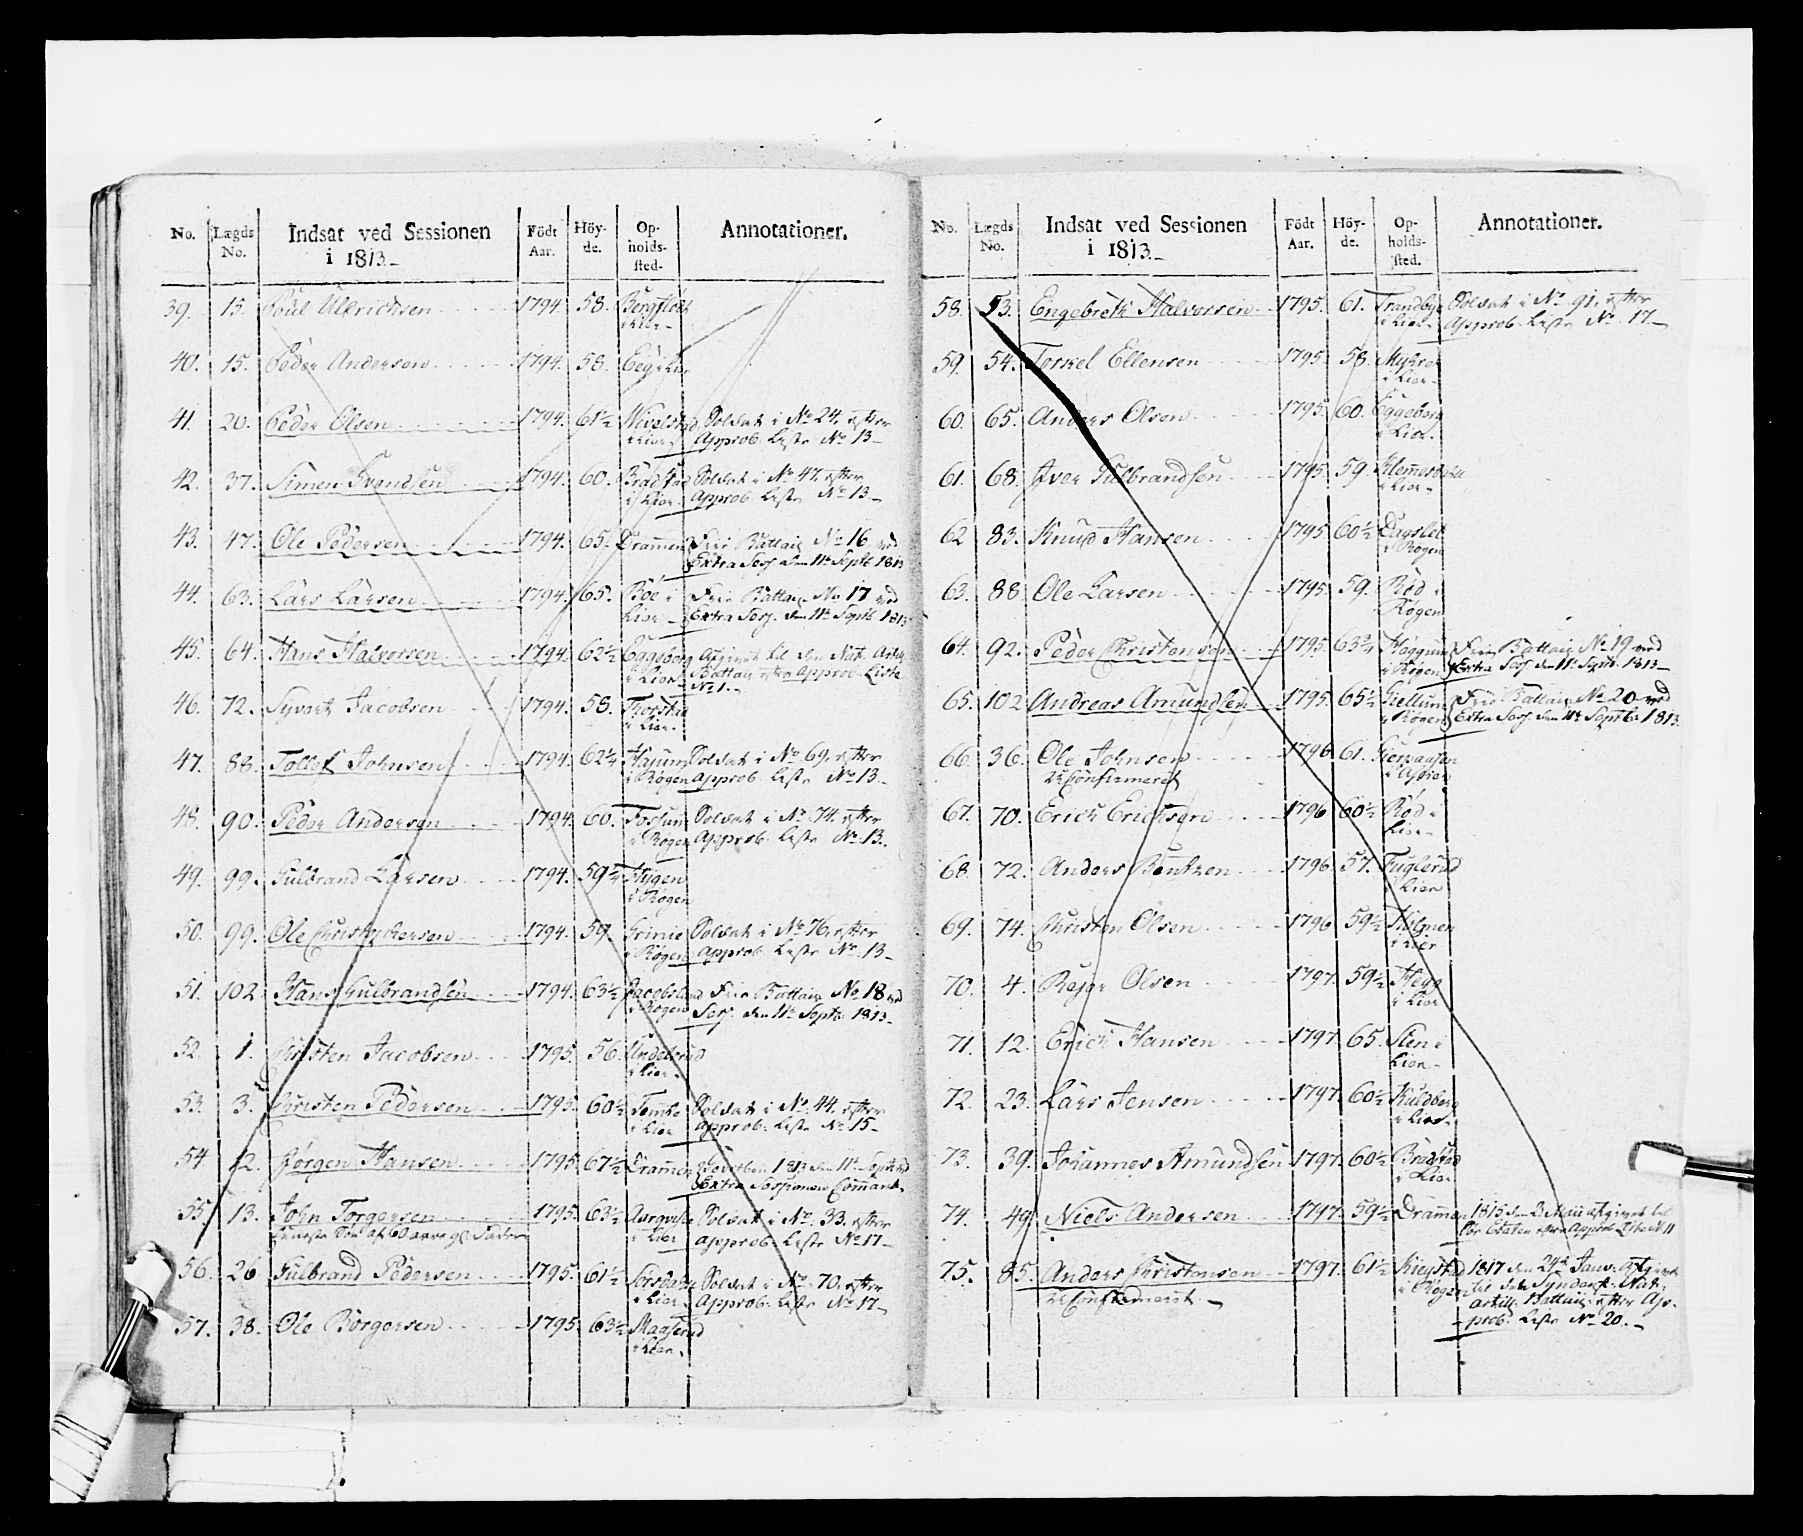 No. Lægds No. Indsat ved Sessionen i 1813. Födt Aar. Höy-de. Op-holds-sted. Annotationer.
39. 15. Poul Ullrichsen 1794. 58.
i Lier
40. 15. Peder Andersen 1794. 58. Eeg i Lier
41. 20. Peder Olsen 1794. 61½ Soldat i No 24. efter
i Lier Approb. Liste No 13
42. 37. Simen Svendsen 1794. 60. Soldat i No 47. efter
i Lier Approb. Liste No 13
43. 47. Ole Pedersen 1794. 65. Drammen Frie Battail. No 16 ved
Extra Sess. den 11te Septb 1813
44. 63. Lars Larsen 1794. 65. Böe i Frie Battail. No 17 ved
Lier Extra Sess. den 11te Septb 1813
45. 64. Hans Halvorsen 1794. 62½ Eggeberg Afgivet til den Nat. Artil.
i Lier Battail. efter Approb. Liste
No 1.
46. 72. Syvert Jacobsen 1794. 58.
i Lier
47. 88. Tollef Johnsen 1794. Soldat i No 69. efter
i Røgen Approb. Liste No 13
48. 90. Peder Andersen 1794. 60. Fossum Soldat i No 74. efter
i Røgen Approb. Liste No 13.
49. 99. Gulbrand Larsen 1794. Hygen
i Røgen
50. 99. Ole Christophersen 1794. 59. Grinie Soldat i No 76. efter
i Røgen Approb. Liste No 13
51. 102. Hans Gulbrandsen 1794. 63½ Frie Battail. No 18 ved
i Røgen Sess. den 11te Septb 1813
52. 1. Christen Jacobsen 1795. 56.
i Lier
53. 3. Christen Pedersen 1795. 60½ Soldat i No. 44. efter
i Lier Approb. Liste No 15
54 12. Jørgen Hansen 1795. 67½ Drammen 1813 den 11te Septb ved
Extra Sessionens Commando
55. 13. John Torgersen 1795. 63½ Soldat i No. 33. efter
eeneste Søn af 60 aars gl. Fader i Lier Approb. Liste No 17
56. 26 Gulbrand Pedersen 1795. 61½ Soldat i No. 70. efter
i Lier Approb. Liste No 17
57. 38. Ole Börgersen 1795. 63½ Maaserud
i Lier
No. Lægds No. Indsat ved Sessionen i 1813. Födt Aar. Höy-de. Op-holds-sted. Annotationer.
58. 53. Engebreth Halvorsen 1795. 61. Trandbye Soldat i No 91. efter
i Lier Approb. Liste No. 17.
59. 54. Torkel Ellensen 1795. 58.
i Lier
60. 65. Anders Olsen 1795. 60. Eggeberg
i Lier.
61. 68. Iver Gulbrandsen 1795. 59.
i Lier
62 83. Knud Hansen 1795. 60½
i Røgen
63. 88 Ole Larsen 1795. 59. Rød i
Røgen
64. 92. Peder Christensen 1795. Frie Battail. No 19 ved
i Røgen Extra Sess. den 11te Septb. 1813
65. 102 Andreas Amundsen 1795. 65½ Frie Battail. No 20 ved
i Røgen Extra Sess. den 11te Septbr 1813.
66. 36. Ole Johnsen 1796 61.
uconfirmeret
67. 70. Erich Erichsen 1796 60½ Rød i
Lier
68. 72. Anders Bentzen 1796 57. Fuglerud
i Lier
69. 74. Christen Olsen 1796 59½
i Lier
70. 4. Olsen 1797. 59½ Hegg
i Lier
71. 12. Erich Hansen 1797 65. Steen i
Lier
72. 23. Lars Jensen 1797. 60½
i Lier
73. 39. Johannes Amundsen 1797. 60½
i Lier
74. 49. Niels Andersen 1797. 59½ Drammen 1815 den 2 Mai afgivet til
Søe Etaten efter Approb. Liste No 11
75. 85. Anders Christensen 1797. 61½ 1817 den 24de Janv. afgivet
uconfirmeret i Røgen til det Nat.
Artill. Battail. efter Ap-
prob. Liste No 20.